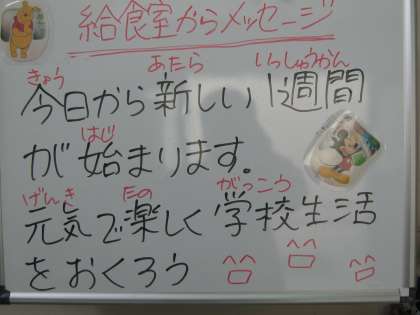 給食室からメッセージ
きょう あたら いっしゅうかん
今日から新しい1週間
はじ
が始まります。
げんき たの がっこう
元気で楽しく学校生活
をおくろう